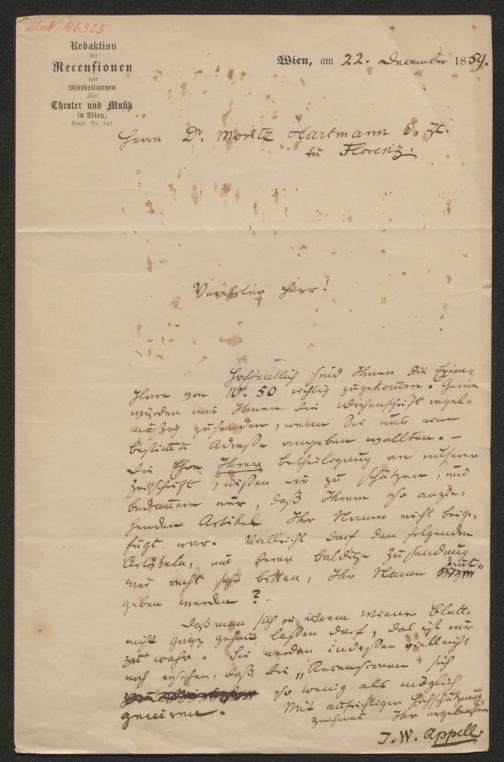 I.N. 46325
Redaktion
der
Recensionen
und
Mittheilungen
über
Theater und Musik
in Wien,
Stadt Nr. 541.
Wien, am 22. December 1859.
Herrn Dr. Moritz Hartmann d. Zt.
in Florenz.
Verehrter Herr!
Hoffentlich sind Ihnen die Exem-
plare von Nr. 50 richtig zugekommen. Gerne
würden wir Ihnen die Wochenschrift regel-
mäßig zusenden, wenn Sie uns eine
bestimmte Adresse angeben wollten. —
Die Ehre Ihrer Betheiligung an unserer
Zeitschrift, wissen wir zu schätzen, und
bedauern nur, daß Ihrem so anzie-
henden Artikel Ihr Name nicht beige-
fügt war. Vielleicht darf den folgenden
Artikeln, um deren baldige Zusendung
wir recht sehr bitten, Ihr Name
geben werden?
Daß man sich in einem Wiener Blatte
nicht ganz gehen lassen darf, das ist nur
zu wahr. Sie werden indessen vielleicht
noch ersehen, daß die „Recensionen" sich
so wenig als möglich
geniren.
Mit aufrichtiger Hochschätzung
zeichnet Ihr ergebenster
J. W. Appell.